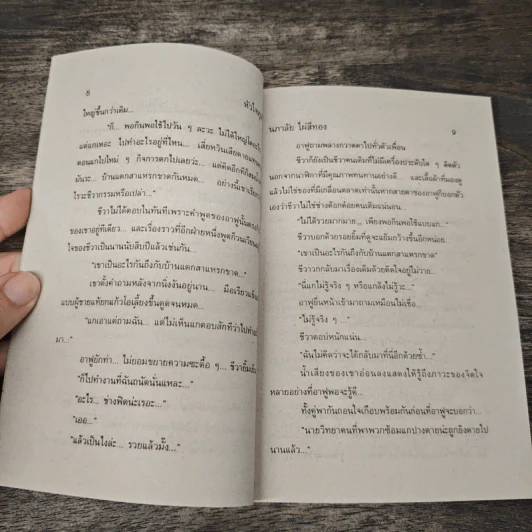 8
หัวใจ
ใหญ่ขึ้นกว่าเดิม...
"ก็... พอกินพอใช้ไปวัน ๆ ละวะ ไม่ได้ใหญ่โต
แต่แกเหอะ ไปทำอะไรอยู่ที่ไหน... เสียหวินเสียดาย
ตอนแกไปใหม่ ๆ กิจการตกไปเลยว่ะ... แต่คิดอีกที
มันวะ... บ้านแตกสาแหรกขาดกันหมด... อย่างนี้เขาเรียก
ไรวะชีวากรรมหรือเปล่า..."
ชีวาไม่ได้ตอบในทันทีเพราะคำพูดของอาฟูนั้น
ของเขาอยู่ทีเดียว... และเรื่องราวที่อีกฝ่ายหนึ่งพูดก็วนเวียน
ใจของชีวาเป็นนานนับสิบปีแล้วเช่นกัน...
"เขาเป็นอะไรกันถึงกับบ้านแตกสาแหรกขาด..."
เขาตั้งคำถามหลังจากนิ่งงันอยู่นาน... มือเรียว
แบบผู้ชายแท้ยกแก้วโอเลี้ยงขึ้นดูดจนหมด...
"แกเอาแต่ถามฉัน... แต่ไม่เห็นแกตอบสักทีว่าไปทำ
มา..."
อาฟูยักท่า... ไม่ยอมขยายความซะดื้อ ๆ... ชีวายิ้ม
"ก็ไปทำงานที่ฉันถนัดนั่นแหละ..."
"อะไร... ช่างฟิตน่ะเรอะ..."
"เออ..."
"แล้วเป็นไงล่ะ... รวยแล้วมั้ง..."
นภาลัย ไผ่สีทอง
9
อาฟูถามพลางกวาดตาไปทั่วตัวเพื่อน
ชีวาก็ยังเป็นชีวาคนเดิมที่ไม่มีเครื่องประดับใด ๆ ติดตัว
นอกจากนาฬิกาที่มีคุณภาพทนทานอย่างดี... และเสื้อผ้าที่มองดู
แล้วไม่ใช่ของที่มีเกลื่อนตลาดเท่านั้นหากสายตาของอาฟูก็บอกตัว
เองว่าชีวาไม่ใช่ช่างต๊อกต๋อยคนเดิมแน่นอน...
"ไม่ได้รวยมากมาย... เพียงพอกินพอใช้แบบแก..."
ชีวาบอกด้วยรอยยิ้มที่ดูจะแย้มกว้างขึ้นอีกหน่อย.
"เขาเป็นอะไรกันถึงกับบ้านแตกสาแหรกขาด"
ชีวาวกกลับมาเรื่องเดิมด้วยติดใจอยู่ไม่วาย...
"นี่แกไม่รู้จริง ๆ หรือแกล้งไม่รู้วะ..."
อาฟูยื่นหน้าเข้ามาถามเหมือนไม่เชื่อ...
"ไม่รู้จริง ๆ..."
ชีวาตอบหนักแน่น...
"ฉันไม่คิดว่าจะได้กลับมาที่นี่อีกด้วยซ้ำ..."
น้ำเสียงของเขาอ่อนลงแสดงให้รู้ถึงภาวะของจิตใจ
หลายอย่างที่อาฟูพอจะรู้ดี...
ทั้งคู่พากันถอนใจเกือบพร้อมกันก่อนที่อาฟูจะบอกว่า...
"นายวิทยาคนที่พาพวกซ้อมแกปางตายน่ะถูกยิงตายไป
นานแล้ว..."